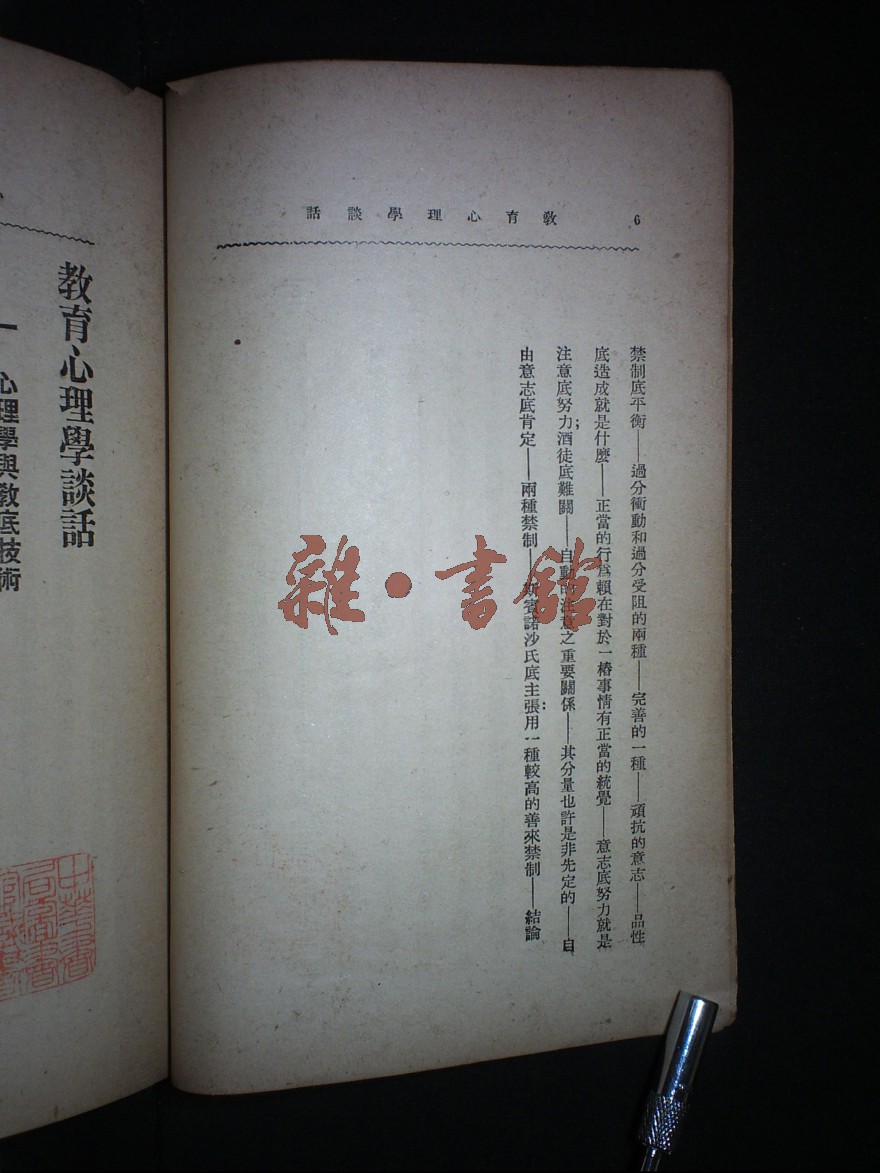 6
教育心理學談話
禁制底平衡——過分衝動和過分受阻的兩種——完善的一種——頑抗的意志——品性
底造成就是什麼——正當的行爲賴在對於一樁事情有正當的統覺——意志底努力就是
注意底努力；酒徒底難關——自動的注意之重要關係——其分量也許是非先定的——自
由意志底肯定——兩種禁制——斯賓諾沙氏底主張：用一種較高的善來禁制——結論
雜·書館
教育心理學談話
一 心理學與教底技術